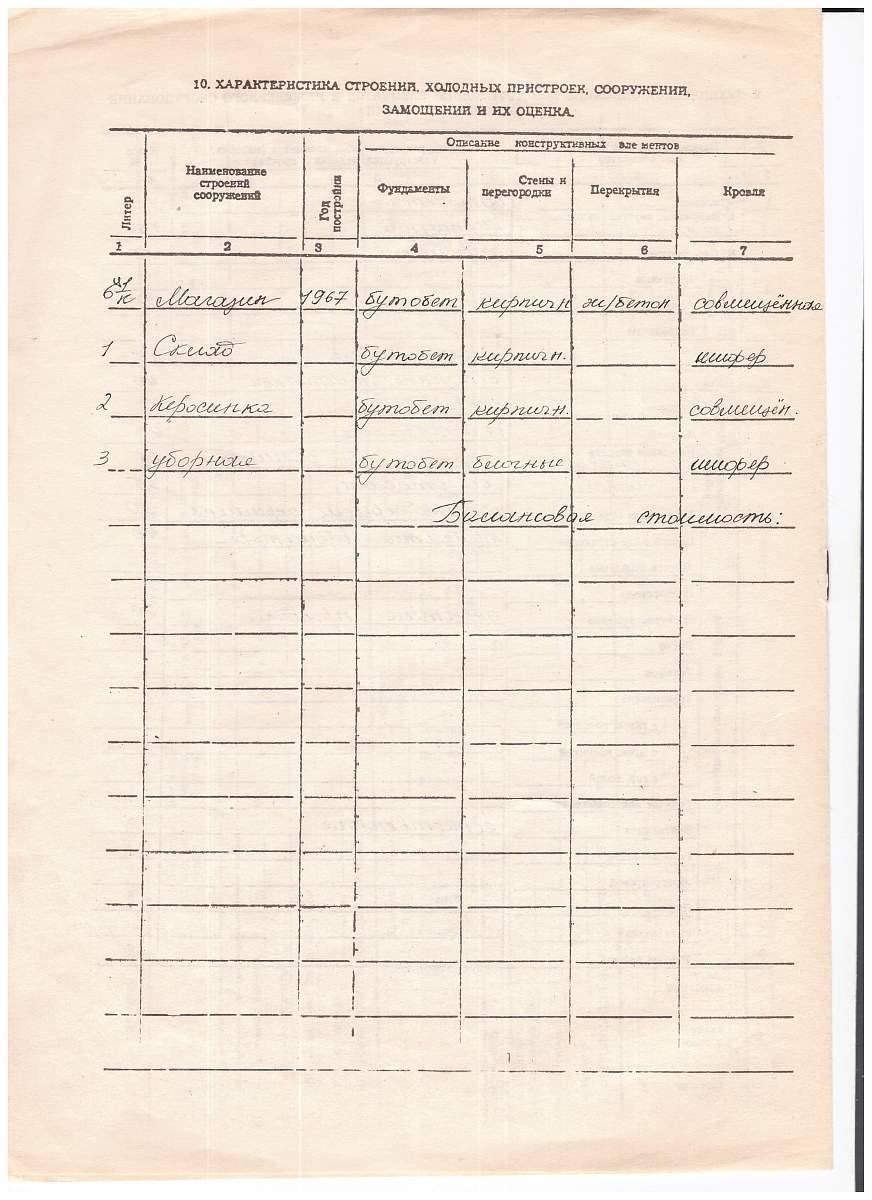 10. ХАРАКТЕРИСТИКА СТРОЕНИЙ, ХОЛОДНЫХ ПРИСТРОЕК, СООРУЖЕНИЙ,
ЗАМОЩЕНИЙ И ИХ ОЦЕНКА.
Описание конструктивных элементов
Литер
Наименование строений сооружений
Год постройки
Фундаменты
Стены и перегородки
Перекрытия
Кровля
1 2 3 4 5 6 7
Магазин 1967 бутобет кирпичн ж/бетон совмещённая
1 Склад бутобет кирпичн. шифер
2 Керосинка бутобет кирпичн. совмещён.
3 уборная бутобет блочные шифер
Балансовая стоимость: